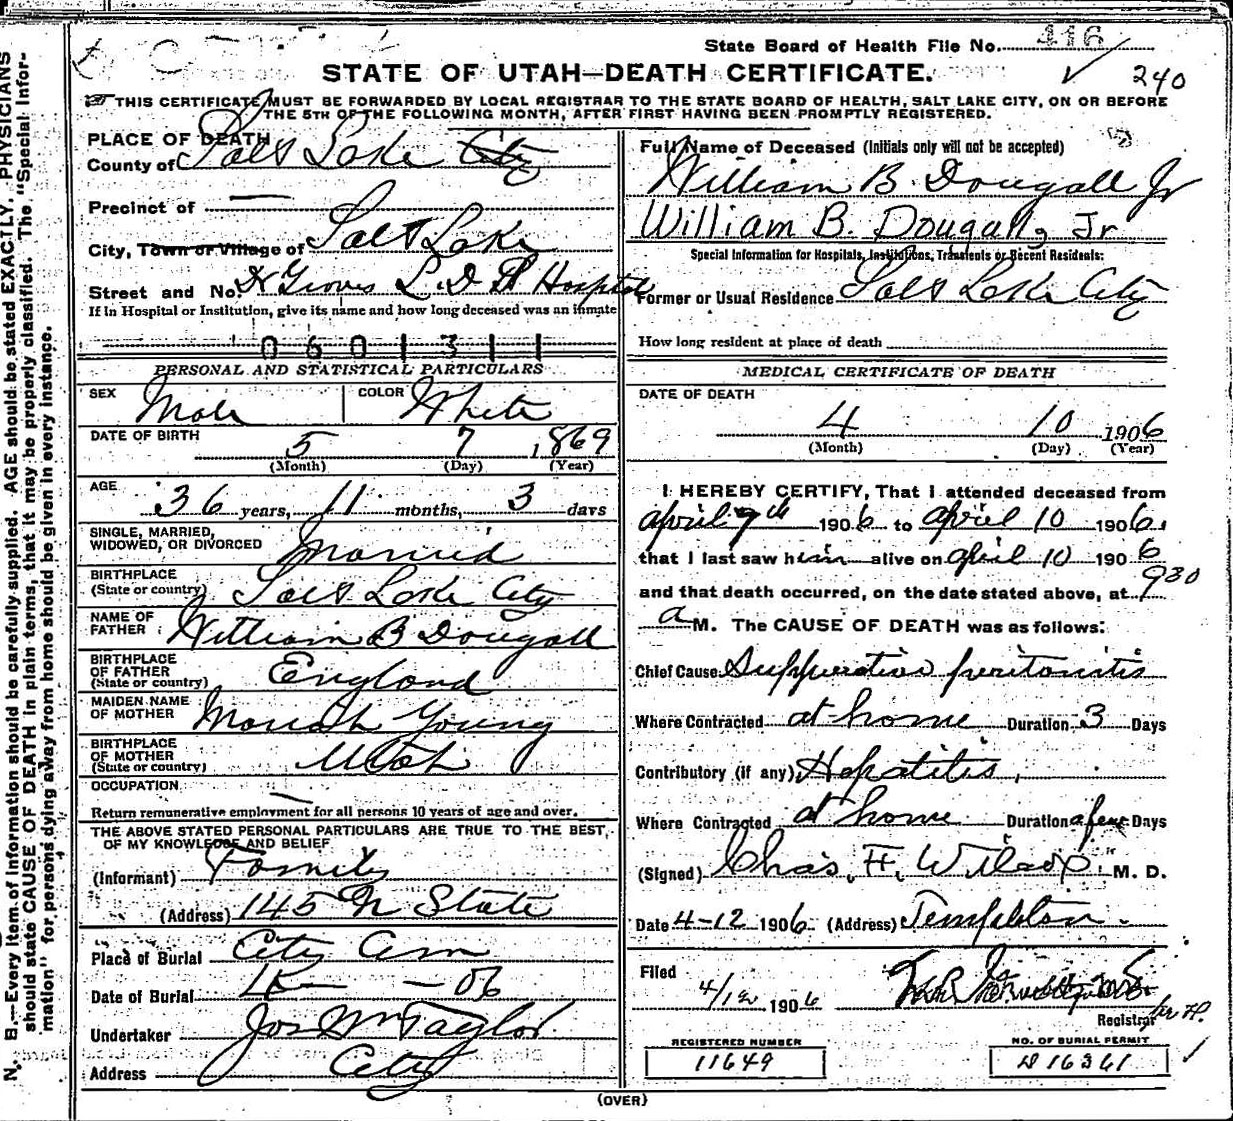 State Board of Health File No. 416
240
STATE OF UTAH—DEATH CERTIFICATE.
THIS CERTIFICATE MUST BE FORWARDED BY LOCAL REGISTRAR TO THE STATE BOARD OF HEALTH, SALT LAKE CITY, ON OR BEFORE
THE 5TH OF THE FOLLOWING MONTH, AFTER FIRST HAVING BEEN PROMPTLY REGISTERED.
PLACE OF DEATH
County of Salt Lake City
Precinct of —
City, Town or Village of Salt Lake
Street and No. Groves L.D.S. Hospital
If in Hospital or Institution, give its name and how long deceased was an inmate
0 6 0 1 3 1 1
PERSONAL AND STATISTICAL PARTICULARS
SEX Male COLOR White
DATE OF BIRTH 5 7 1869
(Month) (Day) (Year)
AGE 36 years, 11 months, 3 days
SINGLE, MARRIED,
WIDOWED, OR DIVORCED Married
BIRTHPLACE
(State or country) Salt Lake City
NAME OF
FATHER William B Dougall
BIRTHPLACE
OF FATHER
(State or country) England
MAIDEN NAME
OF MOTHER Mariah Young
BIRTHPLACE
OF MOTHER
(State or country) Utah
OCCUPATION —
Return remunerative employment for all persons 10 years of age and over.
THE ABOVE STATED PERSONAL PARTICULARS ARE TRUE TO THE BEST
OF MY KNOWLEDGE AND BELIEF
(Informant) Family
(Address) 145 N State
Place of Burial City Cem
Date of Burial — 06
Undertaker Jos Wm Taylor
Address City
Full Name of Deceased (Initials only will not be accepted)
William B. Dougall Jr
William B. Dougall, Jr
Special Information for Hospitals, Institutions, Transients or Recent Residents:
Former or Usual Residence Salt Lake City
How long resident at place of death
MEDICAL CERTIFICATE OF DEATH
DATE OF DEATH
4 10 1906
(Month) (Day) (Year)
I HEREBY CERTIFY, That I attended deceased from
april 7th 1906 to april 10 1906,
that I last saw him alive on april 10 1906
and that death occurred, on the date stated above, at 930
a M. The CAUSE OF DEATH was as follows:
Chief Cause Suppurative peritonitis
Where Contracted at home Duration 3 Days
Contributory (if any) Hepatitis,
Where Contracted at home Duration a few Days
(Signed) Chas. F. Wilcox M. D.
Date 4-12 1906 (Address) Templeton.
Filed
4/12 1906
Registrar
REGISTERED NUMBER
11649
NO. OF BURIAL PERMIT
D 16361
(OVER)
N. B.—Every item of information should be carefully supplied. AGE should be stated EXACTLY. PHYSICIANS
should state CAUSE OF DEATH in plain terms, that it may be properly classified. The "Special Infor-
mation" for persons dying away from home should be given in every instance.